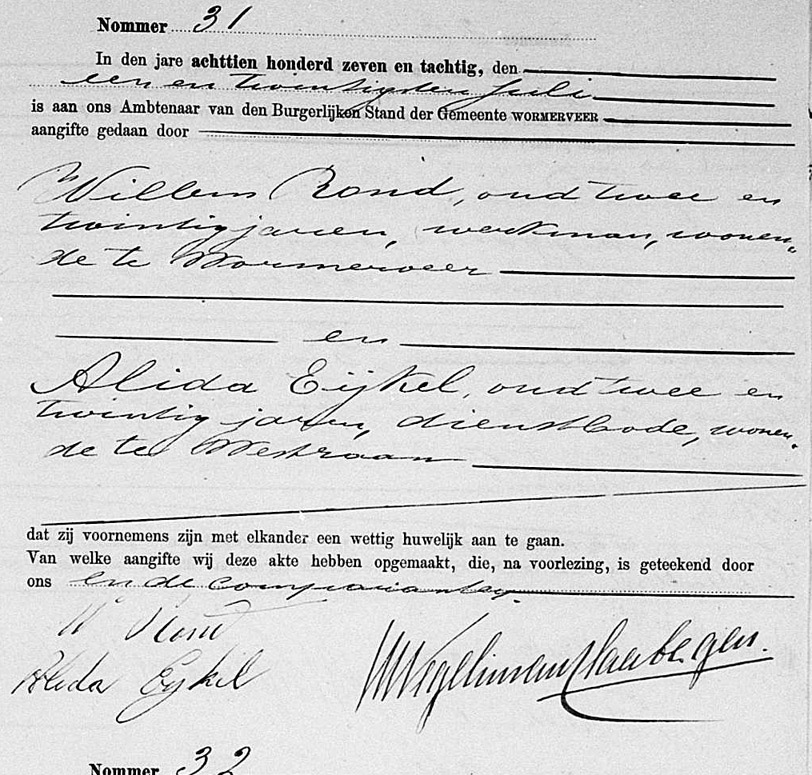 Nommer 31
In den jare achttien honderd zeven en tachtig, den
een en twintigsten Juli
is aan ons Ambtenaar van den Burgerlijken Stand der Gemeente WORMERVEER
aangifte gedaan door
Willem Rond, oud twee en
twintig jaren, werkman, wonen-
de te Wormerveer
en
Alida Eijkel, oud twee en
twintig jaren, dienstbode, wonen-
de te Westzaan
dat zij voornemens zijn met elkander een wettig huwelijk aan te gaan.
Van welke aangifte wij deze akte hebben opgemaakt, die, na voorlezing, is geteekend door
ons en de comparanten.
W Rond
Alida Eykel
Nommer 32